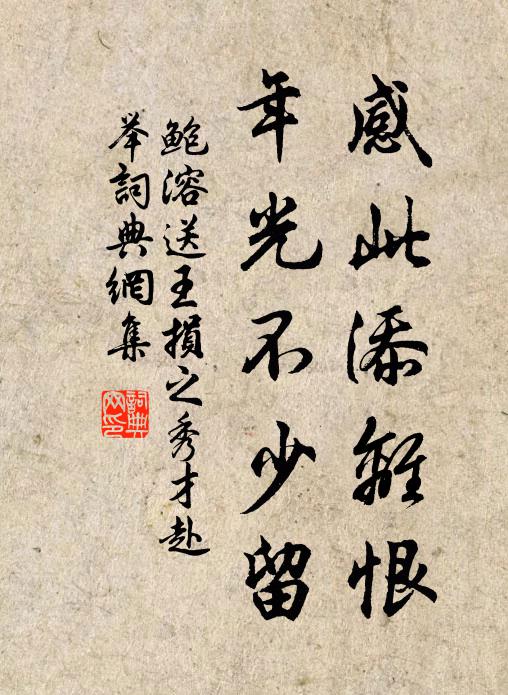 感此添離恨
年光不少留
鮑溶送王損之秀才赴
举詞典網集
詞典
网印